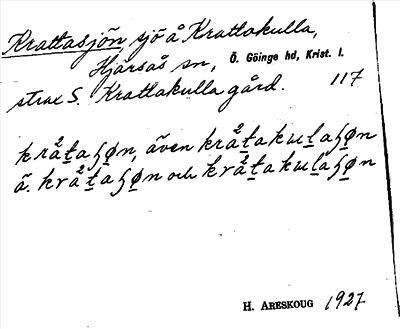 Krattasjön sjö å Krattakulla,
Hjärsås sn, Ö. Göinge hd, Krist. l.
strax S. Krattakulla gård. 117
krat̲aʃøn, även krat̲akul̲aʃøn
ä. krat̲aʃøn och krat̲akul̲aʃøn
H. ARESKOUG 1927